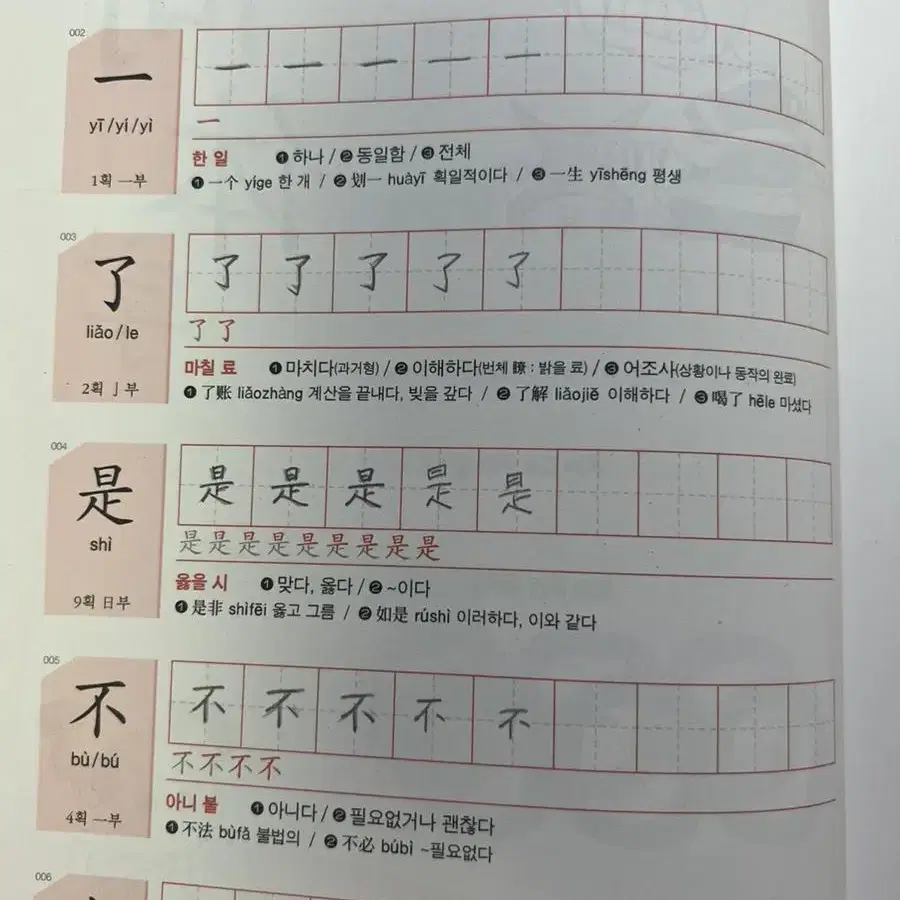 002
一 一 一 一 一 一
yī/yí/yì
一
1획 一부
한 일 ❶ 하나 / ❷ 동일함 / ❸ 전체
❶ 一个 yíge 한 개 / ❷ 划一 huàyī 획일적이다 / ❸ 一生 yīshēng 평생
003
了 了 了 了 了 了
liǎo/le
了了
2획 亅부
마칠 료 ❶ 마치다(과거형) / ❷ 이해하다(번체 瞭 : 밝을 료) / ❸ 어조사(상황이나 동작의 완료)
❶ 了账 liǎozhàng 계산을 끝내다, 빚을 갚다 / ❷ 了解 liǎojiě 이해하다 / ❸ 喝了 hēle 마셨다
004
是 是 是 是 是 是
shì
是是是是是是是是是
9획 日부
옳을 시 ❶ 맞다, 옳다 / ❷ ~이다
❶ 是非 shìfēi 옳고 그름 / ❷ 如是 rúshì 이러하다, 이와 같다
005
不 不 不 不 不 不
bù/bú
不不不不
4획 一부
아니 불 ❶ 아니다 / ❷ 필요없거나 괜찮다
❶ 不法 bùfǎ 불법의 / ❷ 不必 búbì ~필요없다
006